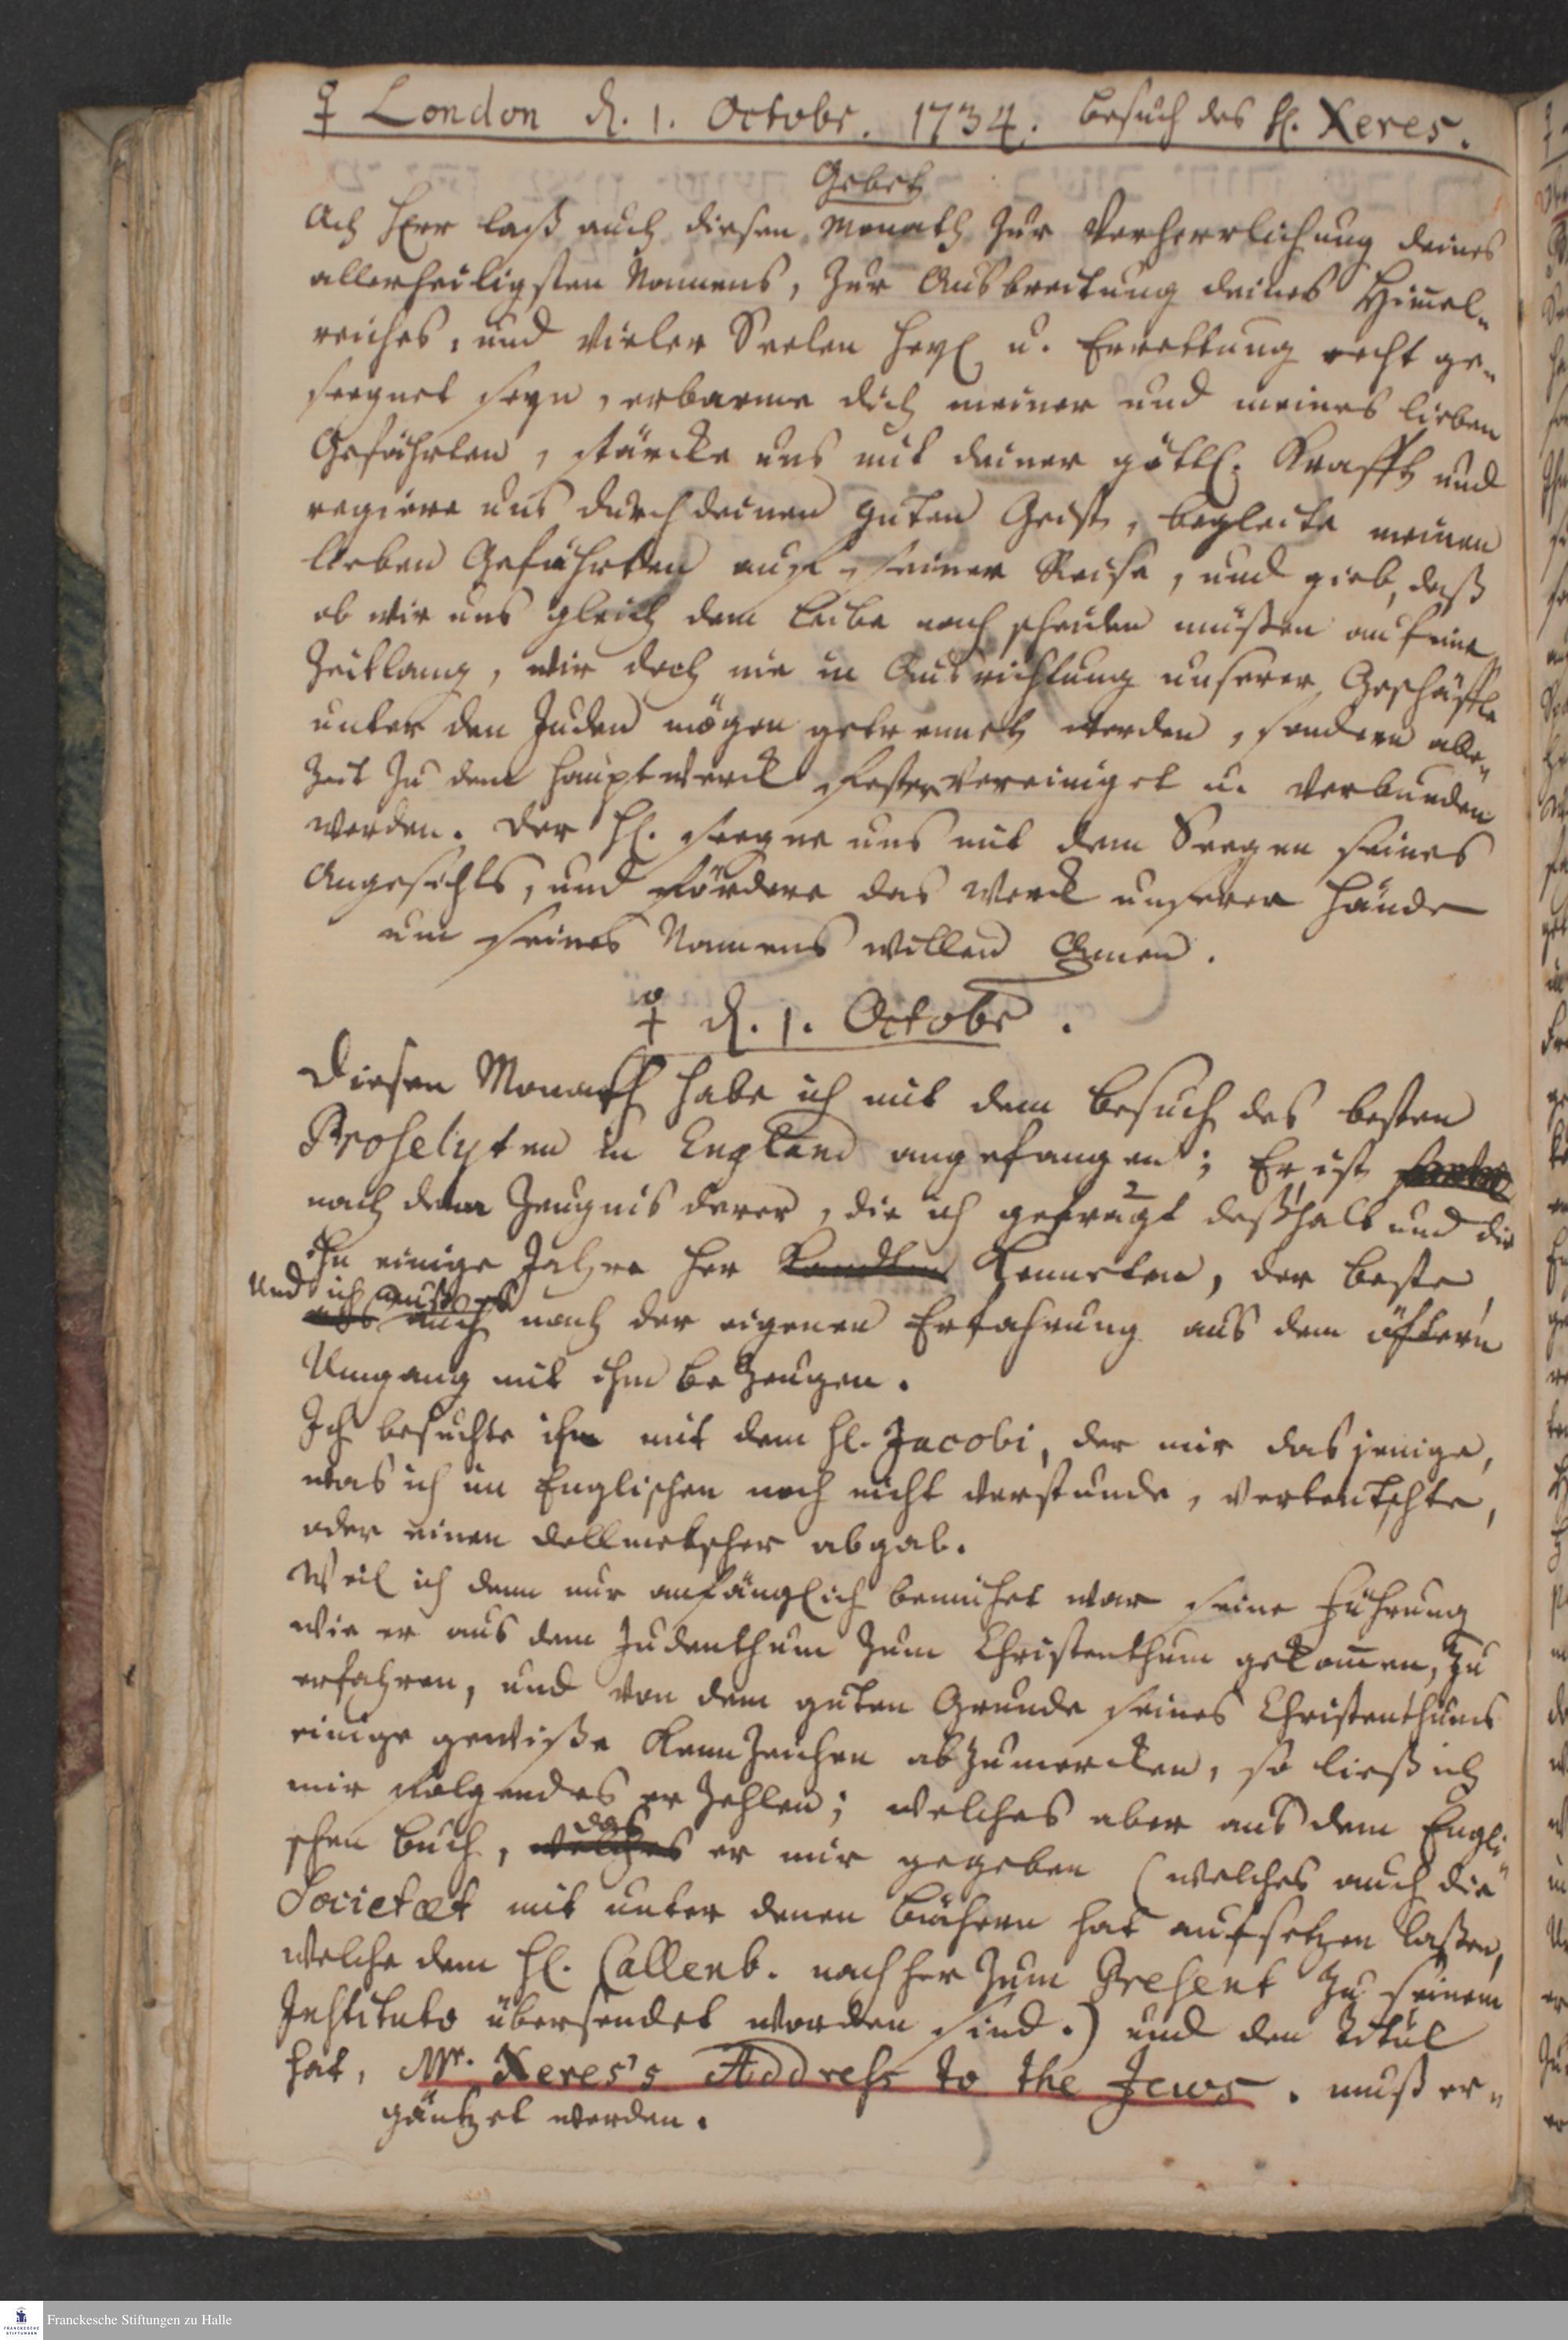 ♀ London d. 1. Octobr. 1734. Besuch des H. Xeres.
Gebet
Ach HErr laß auch diesen Monath zur Verherrlichung deines
allerheiligsten Namens, zur Ausbreitung deines Him̅el-
reiches, und vieler Seelen Heyl u. Errettung recht ge-
seegnet seyn, erbarme dich meiner und meines lieben
Gefährten, stärcke uns mit deiner göttl. Krafft und
regiere uns durch deinen guten Geist, begleite meinen
lieben Gefährten auf seiner Reise, und gieb, daß
ob wir uns gleich dem Leibe nach scheiden müßen auf eine
Zeitlang, wir doch nie in Ausrichtung unserer Geschäffte
unter den Juden mögen getrennet werden, sondern alle-
zeit zu dem Hauptwerck fester vereiniget u. verbunden
werden. Der H. seegne uns mit dem Seegen seines
Angesichts, und fördere das Werck unserer Hände
um seines Namens willen Amen.
♀ d. 1. Octobr.
Diesen Monath habe ich mit dem Besuch des besten
Proselyten in England angefangen; Er ist
nach dem Zeugnis derer, die ich gefragt deßhalb und die
Ihn einige Jahre her kandten kenneten, der beste,
und ich muß es
auch nach der eigenen Erfahrung aus dem öftern
Umgang mit ihm bezeugen.
Ich besuchte ihn mit dem H. Jacobi, der mir dasjenige,
was ich im Englischen noch nicht verstunde, verteutschte,
oder einen Dollmetscher abgab.
Weil ich denn nur anfänglich bemühet war seine Führung
wie er aus dem Judenthum zum Christenthum gekom̅en, zu
erfahren, und von dem guten Grunde seines Christenthums
einige gewiße Kennzeichen abzumercken, so ließ ich
mir folgendes erzehlen; welches aber aus dem Engli-
das
schen Buch, welches er mir gegeben (welches auch die
Societæt mit unter denen Büchern hat aufsetzen laßen,
welche dem H. Callenb. nachher zum Present zu seinem
Instituto übersendet worden sind.) und den Titul
hat, Mr. Xeres's Address to the Jews. muß er-
gäntzet werden.
Franckesche Stiftungen zu Halle